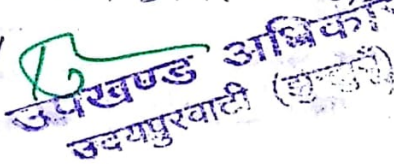 उपखण्ड अधिका
उदयपुरवाटी (झुन्झुनूँ)